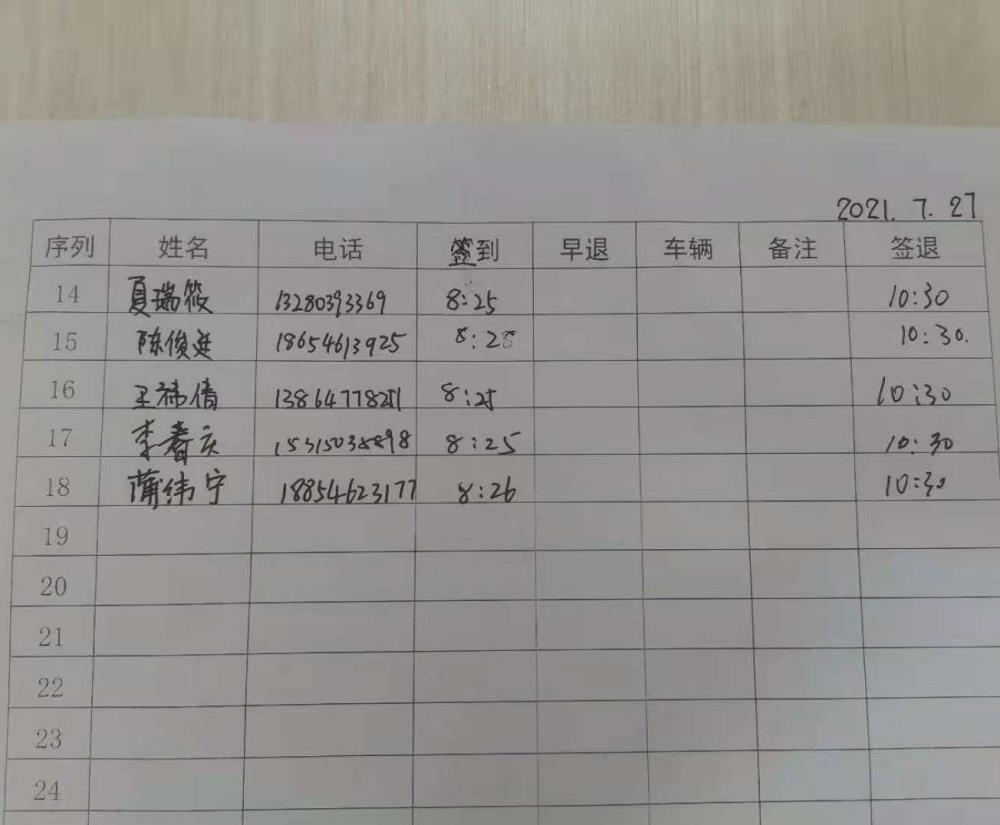 2021. 7. 27
序列 姓名 电话 签到 早退 车辆 备注 签退
14 夏瑞筱 13280393369 8:25 10:30
15 陈俊延 18654613925 8:25 10:30.
16 王祎倩 8:25 10:30
17 李春庆 8:25 10:30
18 蒲纬宁 18854623177 8:26 10:30
19
20
21
22
23
24